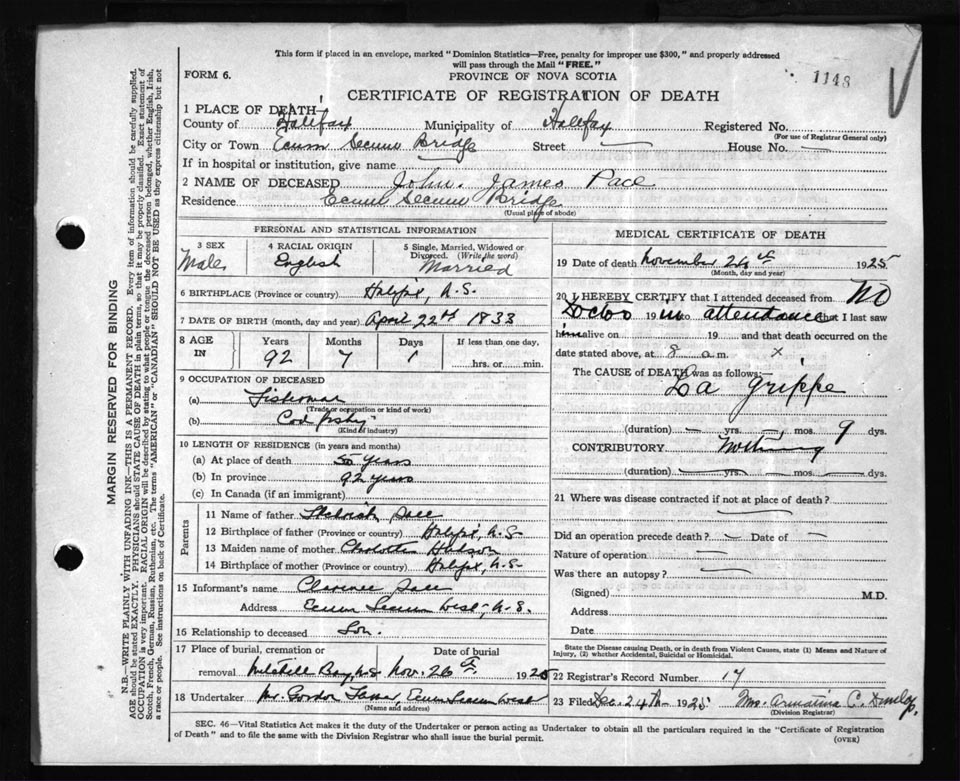 This form if placed in an envelope, marked "Dominion Statistics—Free, penalty for improper use $300," and properly addressed
will pass through the Mail "FREE."
FORM 6.
PROVINCE OF NOVA SCOTIA
1148
CERTIFICATE OF REGISTRATION OF DEATH
1 PLACE OF DEATH—
County of Halifax Municipality of Halifax Registered No.
(For use of Registrar General only)
City or Town Ecum Secum Bridge Street — House No. —
If in hospital or institution, give name —
2 NAME OF DECEASED John James Pace
Residence Ecum Secum Bridge
(Usual place of abode)
PERSONAL AND STATISTICAL INFORMATION
3 SEX
Male
4 RACIAL ORIGIN
English
5 Single, Married, Widowed or
Divorced. (Write the word)
Married
6 BIRTHPLACE (Province or country) Halifax, N.S.
7 DATE OF BIRTH (month, day and year) April 22nd 1833
8 AGE
IN
Years Months Days If less than one day,
92 7 1 hrs. or min.
9 OCCUPATION OF DECEASED
(a) Fisherman
(Trade or occupation or kind of work)
(b) Cod
(Kind of industry)
10 LENGTH OF RESIDENCE (in years and months)
(a) At place of death years
(b) In province 92 years
(c) In Canada (if an immigrant)
Parents
11 Name of father Pace
12 Birthplace of father (Province or country) Halifx, N.S.
13 Maiden name of mother Charlotte
14 Birthplace of mother (Province or country) Halifx, N.S.
15 Informant's name Clarence Pace
Address Ecum Secum West, N.S.
16 Relationship to deceased Son.
17 Place of burial, cremation or Date of burial
removal Mitchell Bay, N.S. Nov. 26th 1925
18 Undertaker Mr. Gordon Ecum Secum West
(Name and address)
MEDICAL CERTIFICATE OF DEATH
19 Date of death November 24th 1925
(Month, day and year)
20 I HEREBY CERTIFY that I attended deceased from No
Doctor 19 in to attendance that I last saw
him alive on 19 and that death occurred on the
date stated above, at 8 a.m. x
The CAUSE OF DEATH was as follows:—
La Grippe
(duration) — yrs. — mos. 9 dys.
CONTRIBUTORY Nothing
(duration) — yrs. — mos. — dys.
21 Where was disease contracted if not at place of death? —
Did an operation precede death? — Date of —
Nature of operation —
Was there an autopsy? —
(Signed) M.D.
Address
Date
State the Disease causing Death, or in death from Violent Causes, state (1) Means and Nature of
Injury, (2) whether Accidental, Suicidal or Homicidal.
22 Registrar's Record Number 17
23 Filed Dec. 24th 1925 Mrs. Armatina C. Dunlop,
(Division Registrar)
SEC. 46—Vital Statistics Act makes it the duty of the Undertaker or person acting as Undertaker to obtain all the particulars required in the "Certificate of Registration
of Death" and to file the same with the Division Registrar who shall issue the burial permit.
(OVER)
MARGIN RESERVED FOR BINDING
N.B.—WRITE PLAINLY WITH UNFADING INK—THIS IS A PERMANENT RECORD. Every item of information should be carefully supplied.
AGE should be stated EXACTLY. PHYSICIANS should STATE CAUSE OF DEATH in plain terms, so that it may be properly classified. Exact statement of
OCCUPATION is very important. RACIAL ORIGIN will be described by stating to what people or tongue the deceased person belonged, whether English, Irish,
Scotch, French, German, Russian, Ruthenian, etc. The terms "AMERICAN" or "CANADIAN" SHOULD NOT BE USED as they express citizenship but not
a race or people. See instructions on back of Certificate.